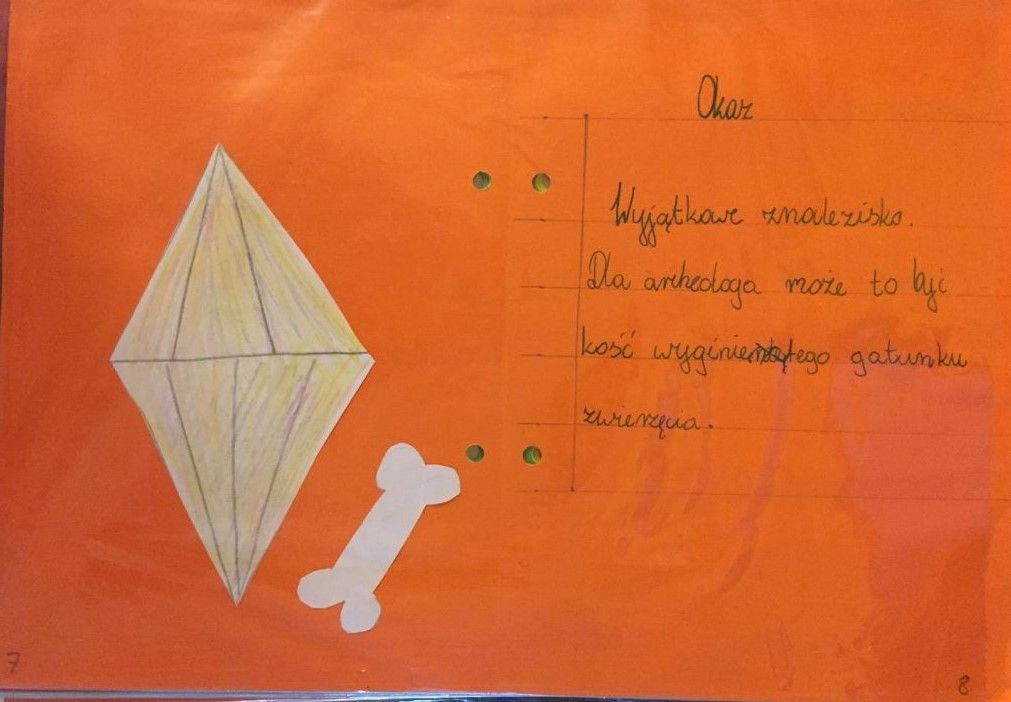 Okaz
Wyjątkowe znalezisko.
Dla archeologa może to być
kość wyginiętego gatunku
zwierzęcia.
7
8